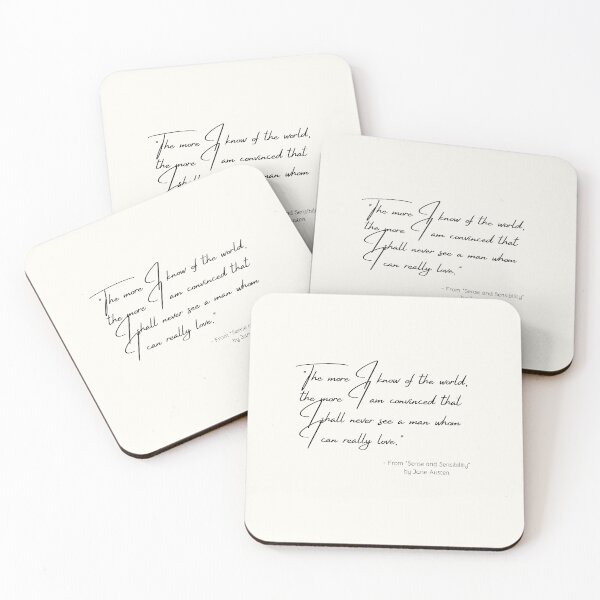 "The more I know of the world,
the more I am convinced that
I sh
a man whom
and Sensibility"
"The more I know of the world,
the more I am convinced that
I shall never see a man whom
I can really love."
- From "Sense and Sensibility"
"The more I know of the world,
the more I am convinced that
I shall never see a man whom
I can really love."
- From "Sense
"The more I know of the world,
the more I am convinced that
I shall never see a man whom
I can really love."
- From "Sense and Sensibility"
by Jane Austen